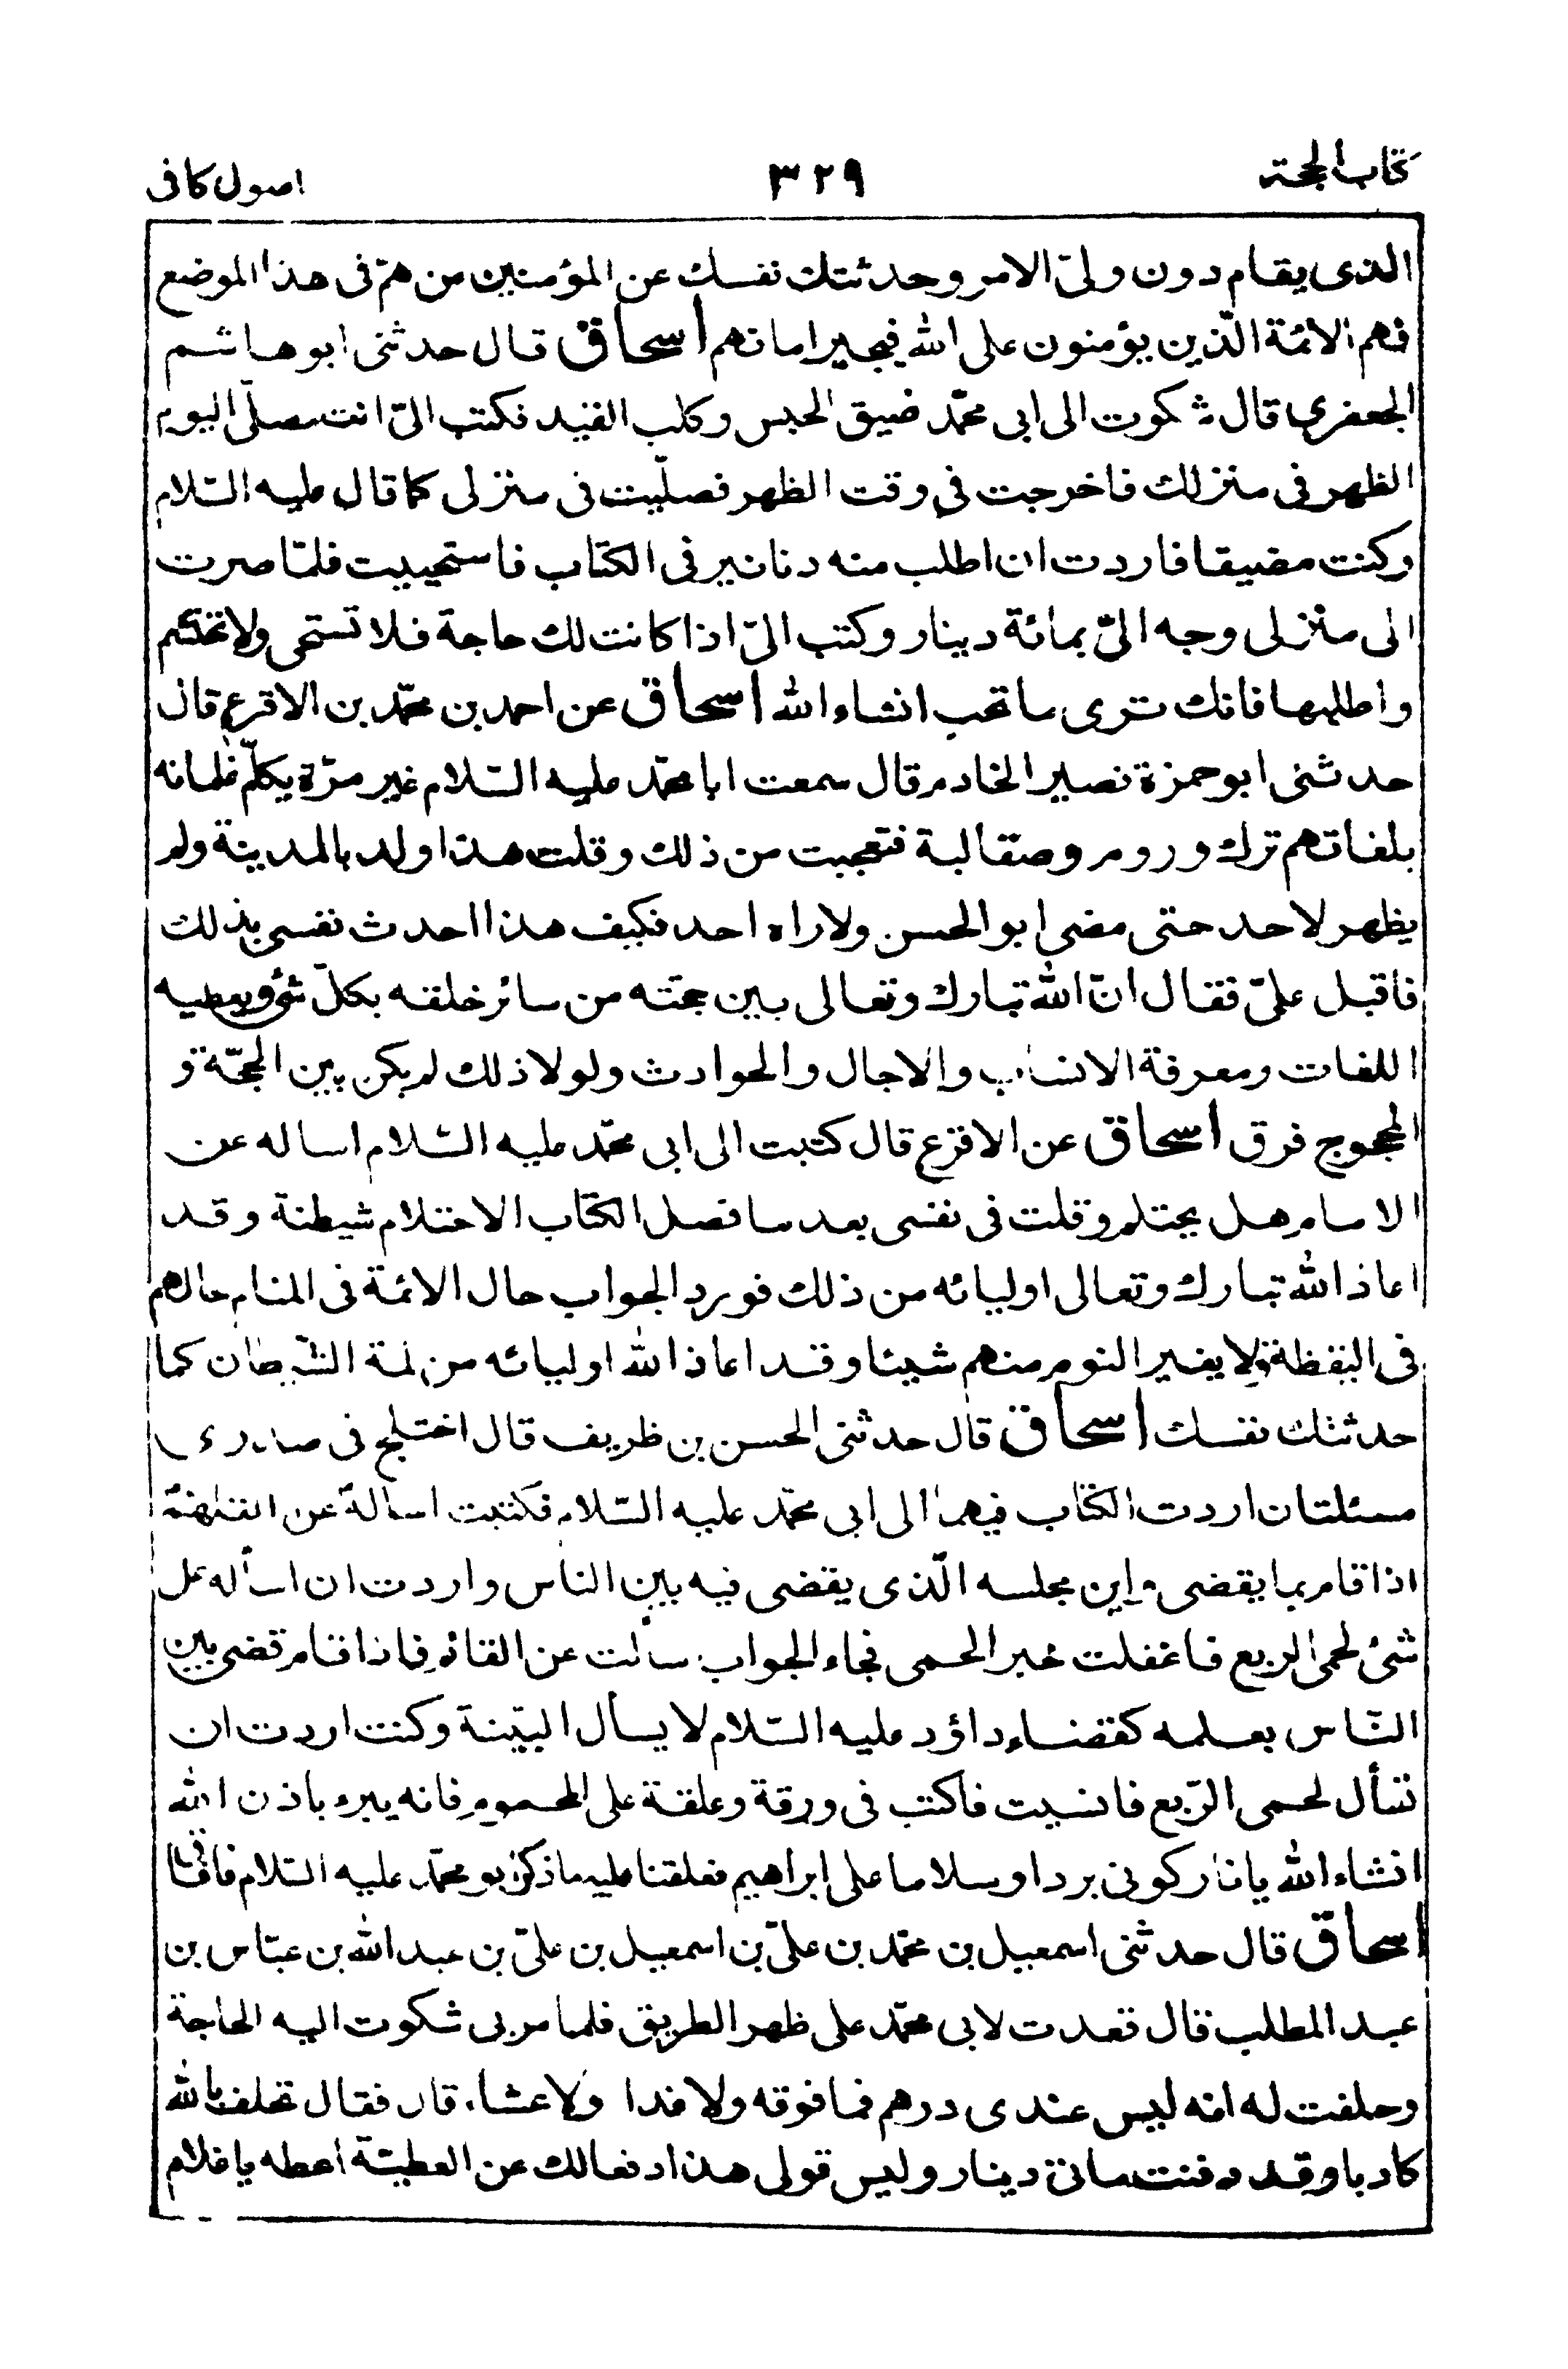 كتاب الحجة ٣٢٩ اصول كافى
الذى يقام دون ولىّ الامر وحدثتك نفسك عن المؤمنين من هم فى هذا الموضع
فهم الائمة الّذين يؤمنون على الله فيجير امانهم اسحاق قال حدثنى ابو هاشم
الجعفرى قال شكوت الى ابى محمّد ضيق الحبس وكلب القيد فكتب الىّ انت مصلّى اليوم
الظهر فى منزلك فاخرجت فى وقت الظهر فصلّيت فى منزلى كما قال عليه السّلام
وكنت مضيقا فاردت ان اطلب منه دنانير فى الكتاب فاستحييت فلمّا صرت
الى منزلى وجه الىّ بمائة دينار وكتب الىّ اذا كانت لك حاجة فلا تستحى ولا تحتشم
واطلبها فانك ترى ما تحب انشاء الله اسحاق عن احمد بن محمّد بن الاقرع قال
حدثنى ابو حمزة نصير الخادم قال سمعت ابا محمّد عليه السّلام غير مرّة يكلّم غلمانه
بلغاتهم ترك وروم وصقالبة فتعجبت من ذلك وقلت هذا ولد بالمدينة ولم
يظهر لاحد حتى مضى ابو الحسن ولا راه احد فكيف هذا احدث نفسى بذلك
فاقبل علىّ فقال انّ الله تبارك وتعالى بين حجّته من سائر خلقه بكلّ شئ ويعطيه
اللغات ومعرفة الانساب والاجال والحوادث ولولا ذلك لم يكن بين الحجّة و
المحجوج فرق اسحاق عن الاقرع قال كتبت الى ابى محمّد عليه السّلام اساله عن
الامام هل يحتلم وقلت فى نفسى بعد ما فصل الكتاب الاحتلام شيطنة وقد
اعاذ الله تبارك وتعالى اوليائه من ذلك فورد الجواب حال الائمة فى المنام حالهم
فى اليقظة ولا يغير النوم منهم شيئا وقد اعاذ الله اوليائه من لمة الشّيطان كما
حدثتك نفسك اسحاق قال حدثنى الحسن بن ظريف قال اختلج فى صدرى
مسئلتان اردت الكتاب فيهما الى ابى محمّد عليه السّلام فكتبت اساله عن القائم
اذا قام بما يقضى واين مجلسه الّذى يقضى فيه بين الناس واردت ان اسأله عن
شئ لحمى الربع فاغفلت خبر الحمى فجاء الجواب سالت عن القائم فاذا قام قضى بين
النّاس بعلمه كقضاء داؤد عليه السّلام لا يسأل البيّنة وكنت اردت ان
تسأل لحمى الرّبع فانسيت فاكتب فى ورقة وعلقة على المحموم فانه يبرء باذن الله
انشاء الله يا نار كونى بردا وسلاما على ابراهيم فعلقنا عليه ما ذكر ابو محمّد عليه السّلام فافاق
اسحاق قال حدثنى اسمعيل بن محمّد بن علىّ بن اسمعيل بن علىّ بن عبد الله بن عبّاس بن
عبد المطلب قال قعدت لابى محمّد على ظهر الطريق فلما مر بى شكوت اليه الحاجة
وحلفت له انه ليس عندى درهم فما فوقه ولا غدا ولا عشاء قال فقال تحلف بالله
كاذبا وقد دفنت مائتى دينار وليس قولى هذا دفعا لك عن العطيّة اعطه يا غلام